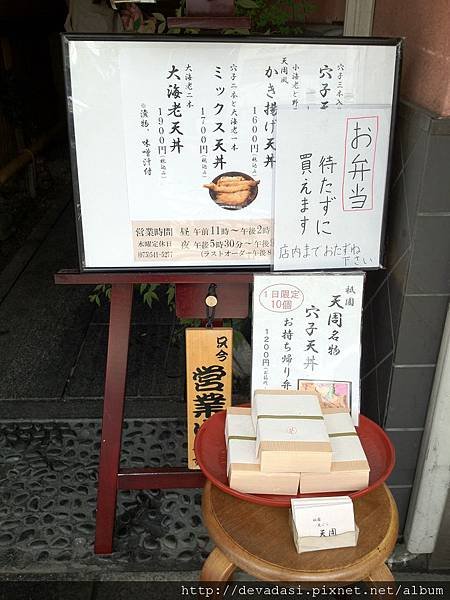 穴子三本入
穴子天
天周風
小海老と野
かき揚げ天丼
1600
穴子二本と大海老一本
ミックス天丼
1700円(税込み)
大海老二本
大海老天丼
1900円(税込み)
※漬物、味噌汁付
営業時間 昼 午前11時〜午後2時
水曜定休日 夜 午後5時30分〜午後8
(075)541-5277 (ラストオーダー午後8
お弁当
待たずに
買えます
店内までおたずね
下さい
1日限定
10個
祇園
天周名物
穴子天丼
お持ち帰り弁
1200円
只今
営業
天周
http://devadasi.pixnet.net/album